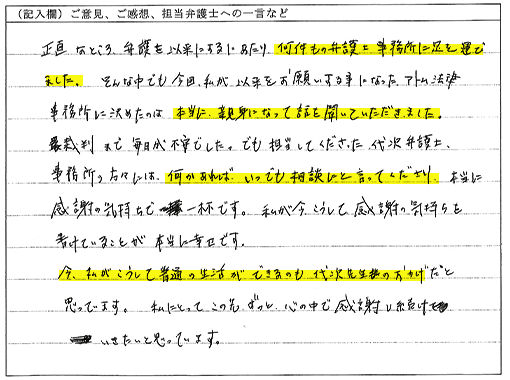 (記入欄)ご意見、ご感想、担当弁護士への一言など
正直なところ、弁護士依頼にするにあたり、何件もの弁護士事務所に足を運び
ました。そんな中でも今回、私が依頼をお願いする事になったアトム法律
事務所に決めたのは、本当に親身になって話を聞いていただきました。
裁判まで毎日が不安でした。でも担当してくださった代次弁護士、
事務所の方々には、何かあればいつでも相談にと言ってくださり、本当に
感謝の気持ちで一杯です。私が今こうして感謝の気持ちを
書けていることが本当に幸せです。
今、私がこうして普通の生活ができるのも代次先生様のおかげだと
思っています。私にとってこの先ずっと、心の中で感謝し続けて
いきたいと思っています。